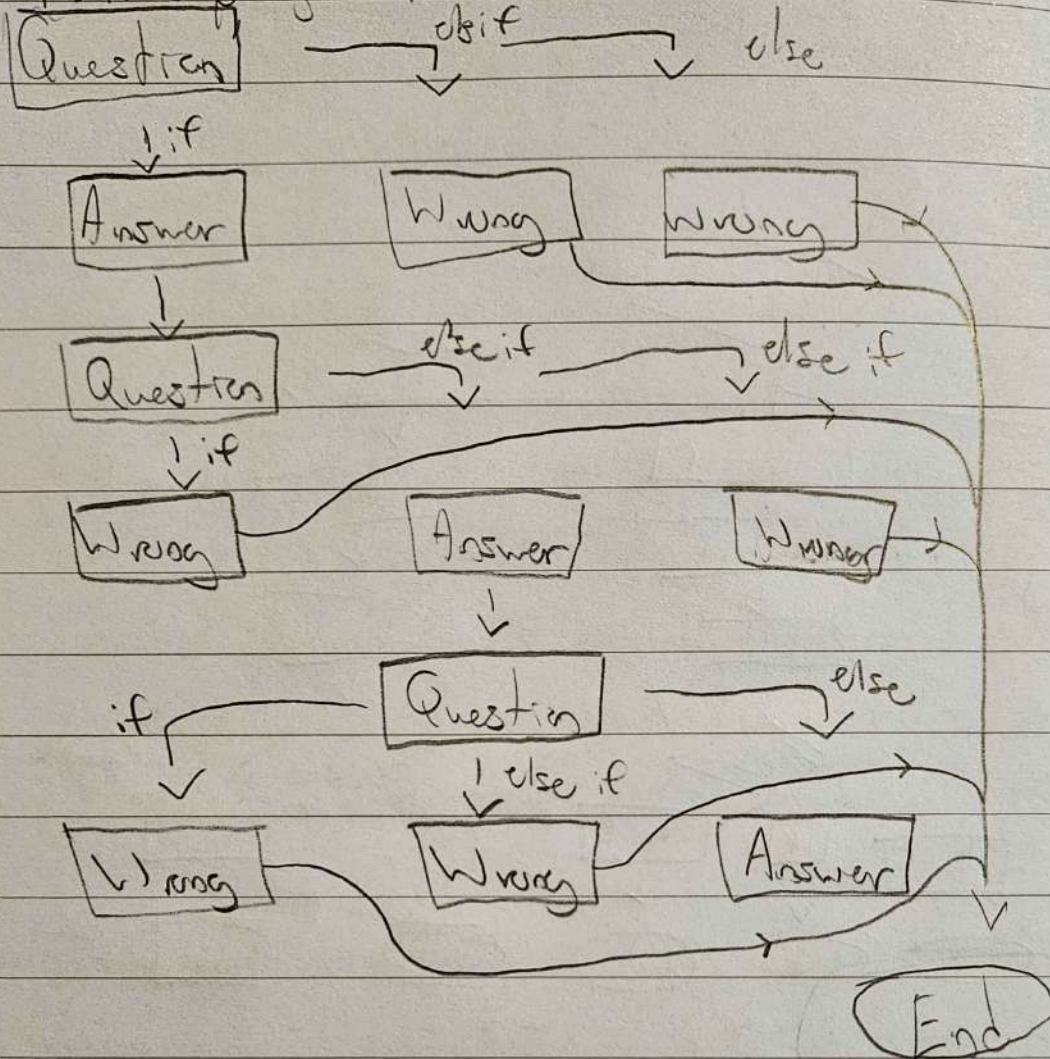 Question elseif else
if
Answer Wrong Wrong
Question else if else if
if
Wrong Answer Wrong
if Question else
else if
Wrong Wrong Answer
End